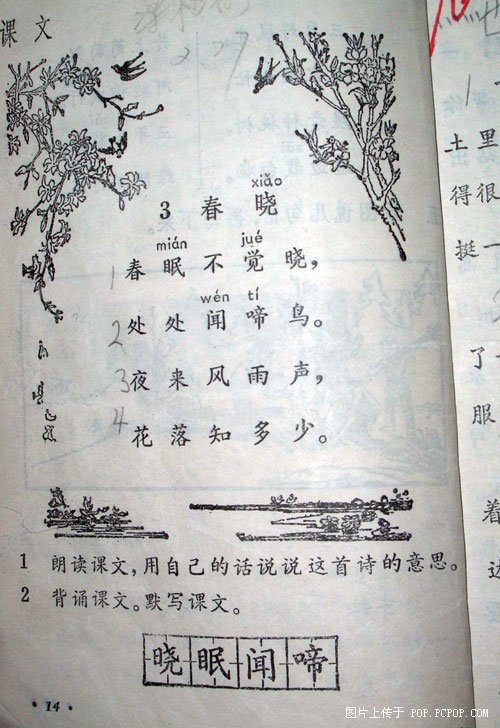 课文
xiǎo
3 春晓
mián jué
1 春眠不觉晓，
wén tí
2 处处闻啼鸟。
3 夜来风雨声，
4 花落知多少。
1 朗读课文，用自己的话说说这首诗的意思。
2 背诵课文。默写课文。
晓眠闻啼
·14·
里很一
土得挺
了服
着边
图片上传于 POP.PCPOP.COM